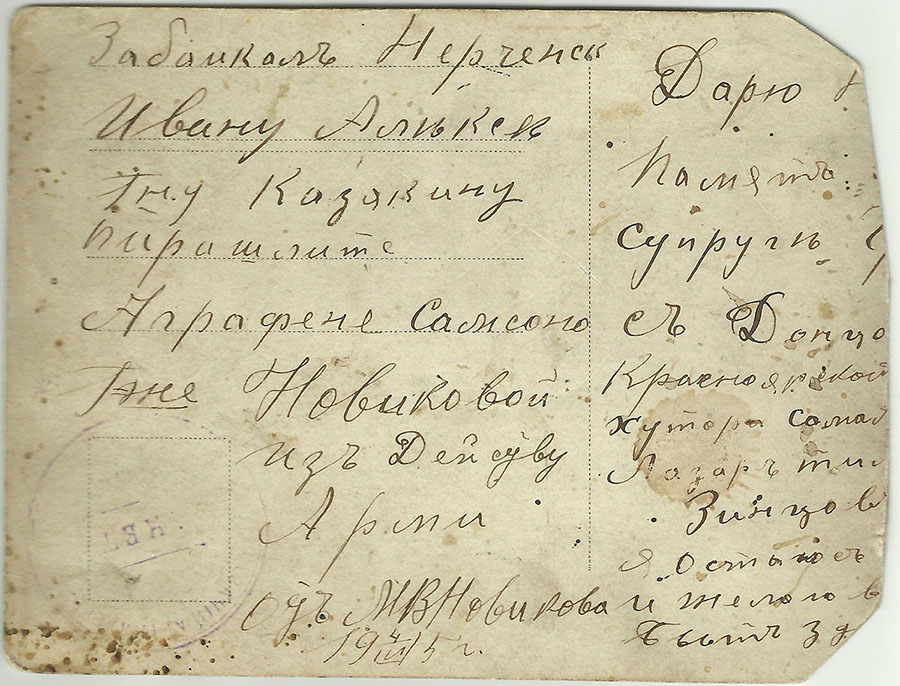 Забаикалъ Нерченск
Ивану Алѣксѣ
Гну Казакину
Пѣрашлите
Аграфене Самсоно
Гже Новиковой
изъ Дейсуву
Арми
одъ МВНовикова
19 4/III 15 г.
НЕТ
Дарю
Памятъ
супругѣ
съ Донцо
Красноярской
хутора сама
Лазаръ
Зинцов
я остаюсъ
и желаю в
бытъ зд